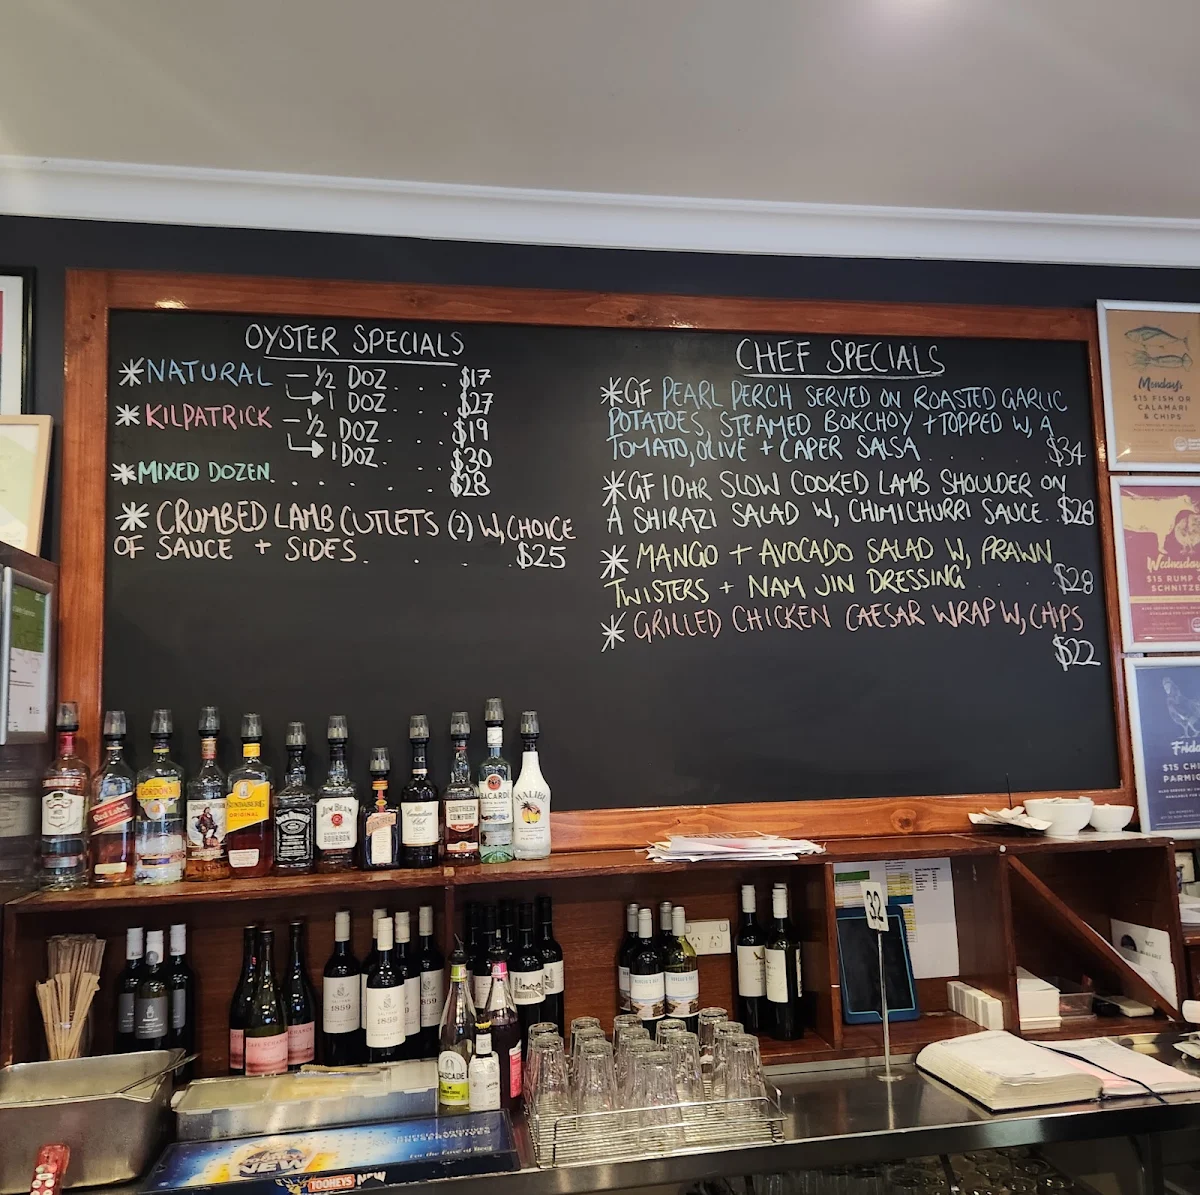 OYSTER SPECIALS
*NATURAL - 1/2 DOZ. . . . $17
1 DOZ. . . . $27
*KILPATRICK - 1/2 DOZ. . . . $19
1 DOZ. . . . $30
*MIXED DOZEN. . . . . . $28
* CRUMBED LAMB CUTLETS (2) W, CHOICE
OF SAUCE + SIDES. . . . $25
CHEF SPECIALS
*GF PEARL PERCH SERVED ON ROASTED GARLIC
POTATOES, STEAMED BOKCHOY + TOPPED W, A
TOMATO, OLIVE + CAPER SALSA . . . . $34
*GF 10HR SLOW COOKED LAMB SHOULDER ON
A SHIRAZI SALAD W, CHIMICHURRI SAUCE. . $28
* MANGO + AVOCADO SALAD W, PRAWN
TWISTERS + NAM JIN DRESSING . . . $28
* GRILLED CHICKEN CAESAR WRAP W, CHIPS
$22
Mondays
$15 FISH OR
CALAMARI
& CHIPS
Wednesday
$15 RUMP
SCHNITZE
Frida
$15 CH
PARMIG
Red Label
GORDON'S
BUNDABERG
ORIGINAL
JACK DANIEL'S
JIM BEAM
BOURBON
Canadian Club
SOUTHERN
COMFORT
BACARDI
MALIBU
32
1859
1859
1859
CASCADE
NEW
TOOHEYS NEW